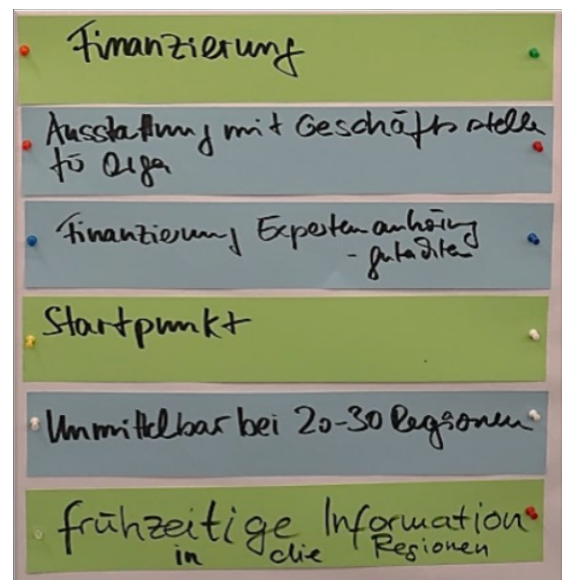 Finanzierung
Ausstattung mit Geschäftsstelle
fü Orga
Finanzierung Expertenanhörung
- gutachten
Startpunkt
Unmittelbar bei 20-30 Regionen
frühzeitige Information
in die Regionen